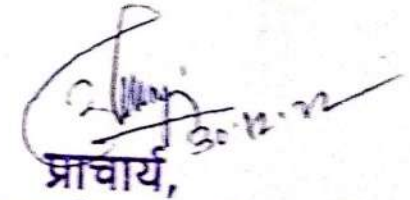 30.12.22
प्राचार्य,